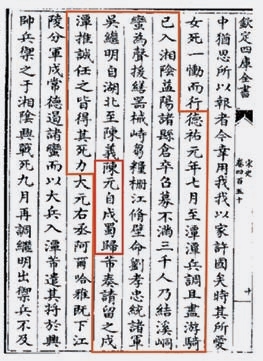 欽定四庫全書
宋史
卷四百五十
中猶思所以報者今幸用我我以家許國矣時其所愛
女死一慟而行德祐元年七月至潭潭兵調且盡游騎
已入湘陰益陽諸縣倉卒召募不滿三千人乃結溪峒
蠻為聲援繕器械峙芻糧柵江脩壁命劉孝忠統諸軍
吳繼明自湖北至陳義陳元自戍蜀歸芾奏請留之戍
潭推誠任之皆得其死力大元右丞阿爾哈雅既下江
陵分軍戍常德遏諸蠻而以大兵入潭芾遣其將於興
帥兵禦之于湘陰興戰死九月再調繼明出禦兵不及